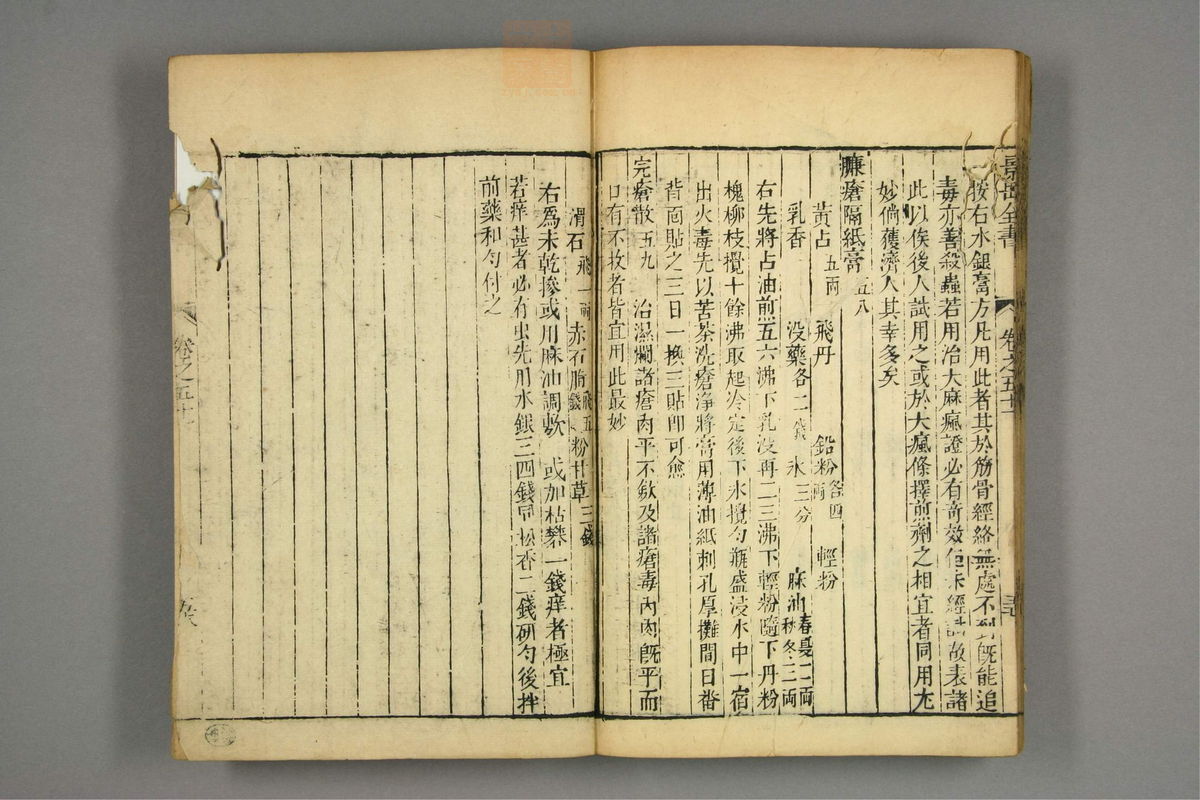 景岳全書 卷之五十一
一按右水銀膏方凡用此者其於筋骨經絡無處不到旣能追
毒亦善殺蟲若用治大麻瘋證必有奇效但未經試故表諸
此以俟後人試用之或於大瘋條擇煎劑之相宜者同用尤
妙倘獲濟人其幸多矣
臁瘡隔紙膏 五八
黃占五兩 飛丹 鉛粉各四兩 輕粉
乳香 沒藥各二錢 氷三分 麻油春夏二兩秋冬三兩
右先將占油煎五六沸下乳沒再二三沸下輕粉隨下丹粉
槐柳枝攪十餘沸取起冷定後下氷攪勻瓶盛浸水中一宿
出火毒先以苦茶洗瘡淨將膏用薄油紙刺孔厚攤間日番
背面貼之三日一換三貼卽可愈
完瘡散 五九 治濕爛諸瘡肉平不斂及諸瘡毒內肉旣平而
口有不收者皆宜用此最妙
滑石飛一兩 赤石脂飛五錢 粉甘草三錢
右爲末乾摻或用麻油調敷 或加枯礬一錢痒者極宜
若痒甚者必有虫先用水銀三四錢同松香二錢研勻後拌
前藥和勻付之
卷之五十一